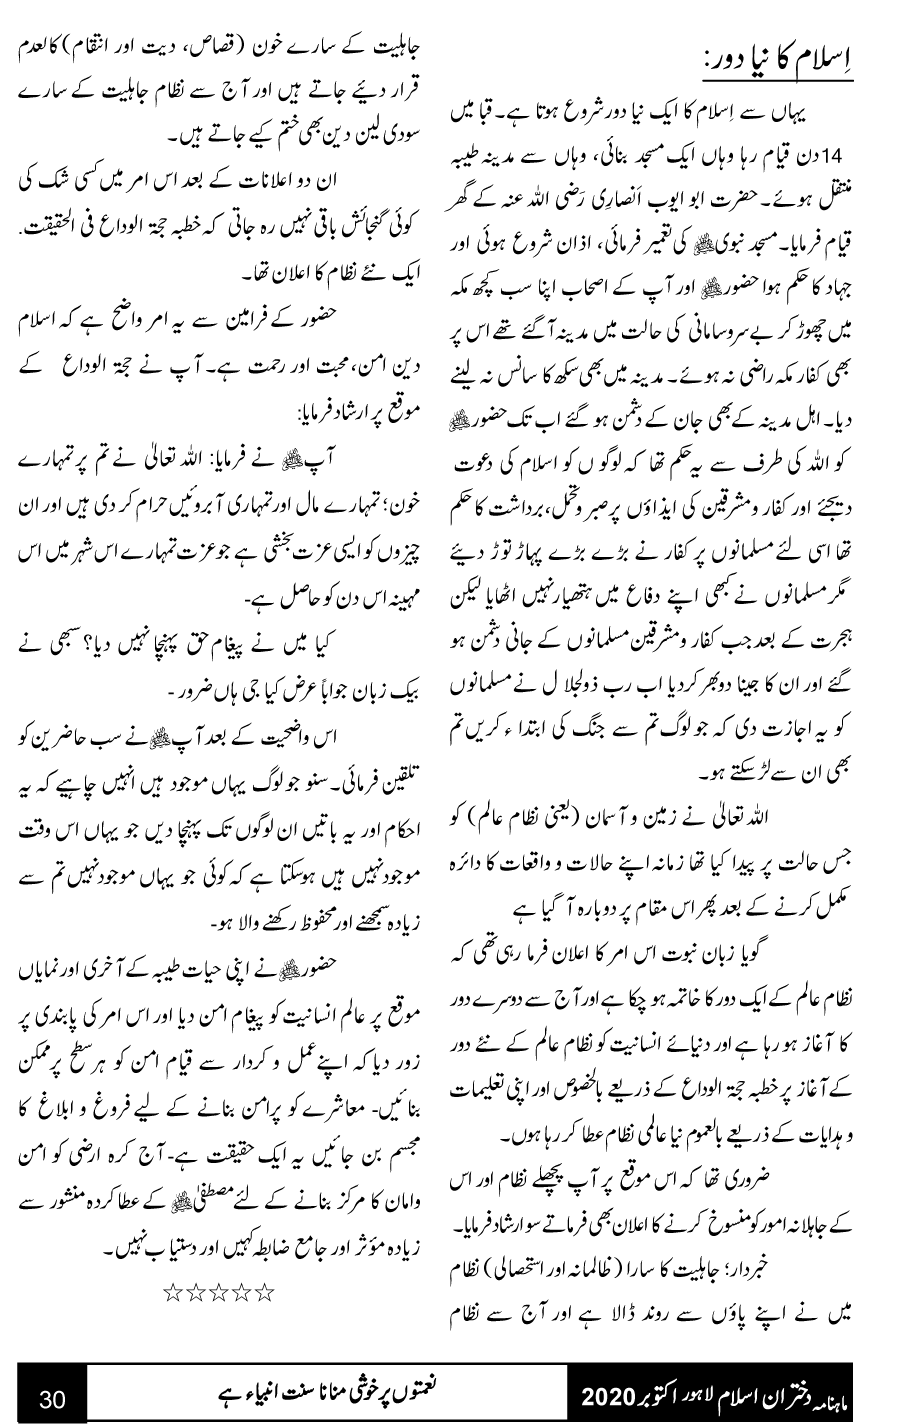 اِسلام کا نیا دور:
یہاں سے اِسلام کا ایک نیا دور شروع ہوتا ہے۔ قبا میں
14 دن قیام رہا وہاں ایک مسجد بنائی، وہاں سے مدینہ طیبہ
منتقل ہوئے۔ حضرت ابو ایوب اَنصارِی رَضی اللہ عنہ کے گھر
قیام فرمایا۔ مسجد نبوی ﷺ کی تعمیر فرمائی، اذان شروع ہوئی اور
جہاد کا حکم ہوا حضور ﷺ اور آپ کے اصحاب اپنا سب کچھ مکہ
میں چھوڑ کر بے سروسامانی کی حالت میں مدینہ آگئے تھے اس پر
بھی کفار مکہ راضی نہ ہوئے۔ مدینہ میں بھی سکھ کا سانس نہ لینے
دیا۔ اہل مدینہ کے بھی جان کے دشمن ہو گئے اب تک حضور ﷺ
کو اللہ کی طرف سے یہ حکم تھا کہ لوگوں کو اسلام کی دعوت
دیجئے اور کفار و مشرقین کی ایذاؤں پر صبر و تحمل، برداشت کا حکم
تھا اسی لئے مسلمانوں پر کفار نے بڑے بڑے پہاڑ توڑ دیئے
مگر مسلمانوں نے کبھی اپنے دفاع میں ہتھیار نہیں اٹھایا لیکن
ہجرت کے بعد جب کفار و مشرقین مسلمانوں کے جانی دشمن ہو
گئے اور ان کا جینا دوبھر کردیا اب رب ذولجلا ل نے مسلمانوں
کو یہ اجازت دی کہ جو لوگ تم سے جنگ کی ابتداء کریں تم
بھی ان سے لڑ سکتے ہو۔
اللہ تعالیٰ نے زمین و آسمان (یعنی نظام عالم) کو
جس حالت پر پیدا کیا تھا زمانہ اپنے حالات و واقعات کا دائرہ
مکمل کرنے کے بعد پھر اس مقام پر دوبارہ آ گیا ہے
گویا زبان نبوت اس امر کا اعلان فرما رہی تھی کہ
نظام عالم کے ایک دور کا خاتمہ ہو چکا ہے اور آج سے دوسرے دور
کا آغاز ہو رہا ہے اور دنیائے انسانیت کو نظام عالم کے نئے دور
کے آغاز پر خطبہ حجۃ الوداع کے ذریعے بالخصوص اور اپنی تعلیمات
و ہدایات کے ذریعے بالعموم نیا عالمی نظام عطا کر رہا ہوں۔
ضروری تھا کہ اس موقع پر آپ پچھلے نظام اور اس
کے جاہلانہ امور کو منسوخ کرنے کا اعلان بھی فرماتے سو ارشاد فرمایا۔
خبردار؛ جاہلیت کا سارا (ظالمانہ اور استحصالی) نظام
میں نے اپنے پاؤں سے روند ڈالا ہے اور آج سے نظام
جاہلیت کے سارے خون (قصاص، دیت اور انتقام) کالعدم
قرار دیئے جاتے ہیں اور آج سے نظام جاہلیت کے سارے
سودی لین دین بھی ختم کیے جاتے ہیں۔
ان دو اعلانات کے بعد اس امر میں کسی شک کی
کوئی گنجائش باقی نہیں رہ جاتی کہ خطبہ حجۃ الوداع فی الحقیقت.
ایک نئے نظام کا اعلان تھا۔
حضور کے فرامین سے یہ امر واضح ہے کہ اسلام
دین امن، محبت اور رحمت ہے۔ آپ نے حجۃ الوداع کے
موقع پر ارشاد فرمایا:
آپ ﷺ نے فرمایا: اللہ تعالیٰ نے تم پر تمہارے
خون؛ تمہارے مال اور تمہاری آبروئیں حرام کر دی ہیں اور ان
چیزوں کو ایسی عزت بخشی ہے جو عزت تمہارے اس شہر میں اس
مہینہ اس دن کو حاصل ہے-
کیا میں نے پیغام حق پہنچا نہیں دیا؟ سبھی نے
بیک زبان جواباً عرض کیا جی ہاں ضرور -
اس واضحیت کے بعد آپ ﷺ نے سب حاضرین کو
تلقین فرمائی۔ سنو جو لوگ یہاں موجود ہیں انہیں چاہیے کہ یہ
احکام اور یہ باتیں ان لوگوں تک پہنچا دیں جو یہاں اس وقت
موجود نہیں ہیں ہوسکتا ہے کہ کوئی جو یہاں موجود نہیں تم سے
زیادہ سمجھنے اور محفوظ رکھنے والا ہو-
حضور ﷺ نے اپنی حیات طیبہ کے آخری اور نمایاں
موقع پر عالم انسانیت کو پیغام امن دیا اور اس امر کی پابندی پر
زور دیا کہ اپنے عمل و کردار سے قیام امن کو ہر سطح پر ممکن
بنائیں- معاشرے کو پرامن بنانے کے لیے فروغ و ابلاغ کا
مجسم بن جائیں یہ ایک حقیقت ہے- آج کرہ ارضی کو امن
وامان کا مرکز بنانے کے لئے مصطفیٰ ﷺ کے عطا کردہ منشور سے
زیادہ مؤثر اور جامع ضابطہ کہیں اور دستیاب نہیں۔
☆☆☆☆☆
ماہنامہ دختران اسلام لاہور اکتوبر 2020
نعمتوں پر خوشی منانا سنت انبیاء ہے
30